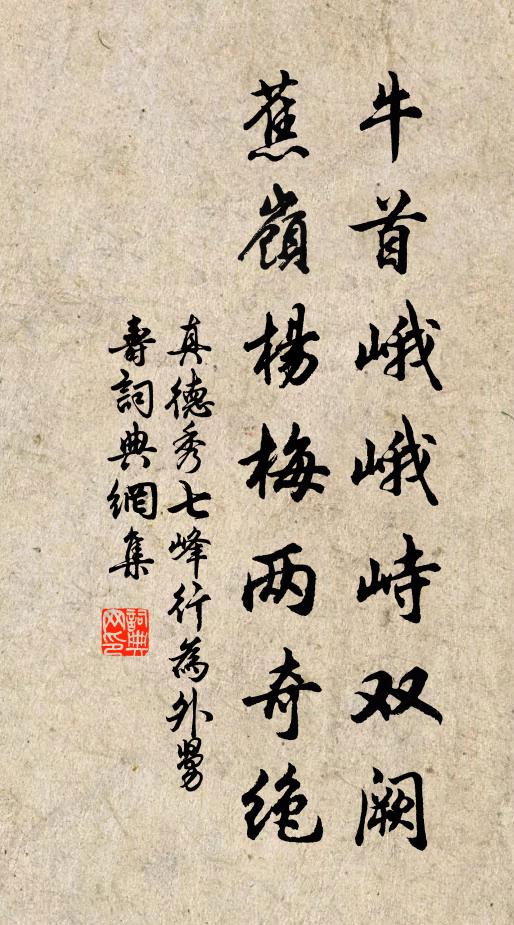 牛首峨峨峙双阙
蕉嶺楊梅两奇绝
真德秀七峰行為外舅
壽詞典網集
詞典网印